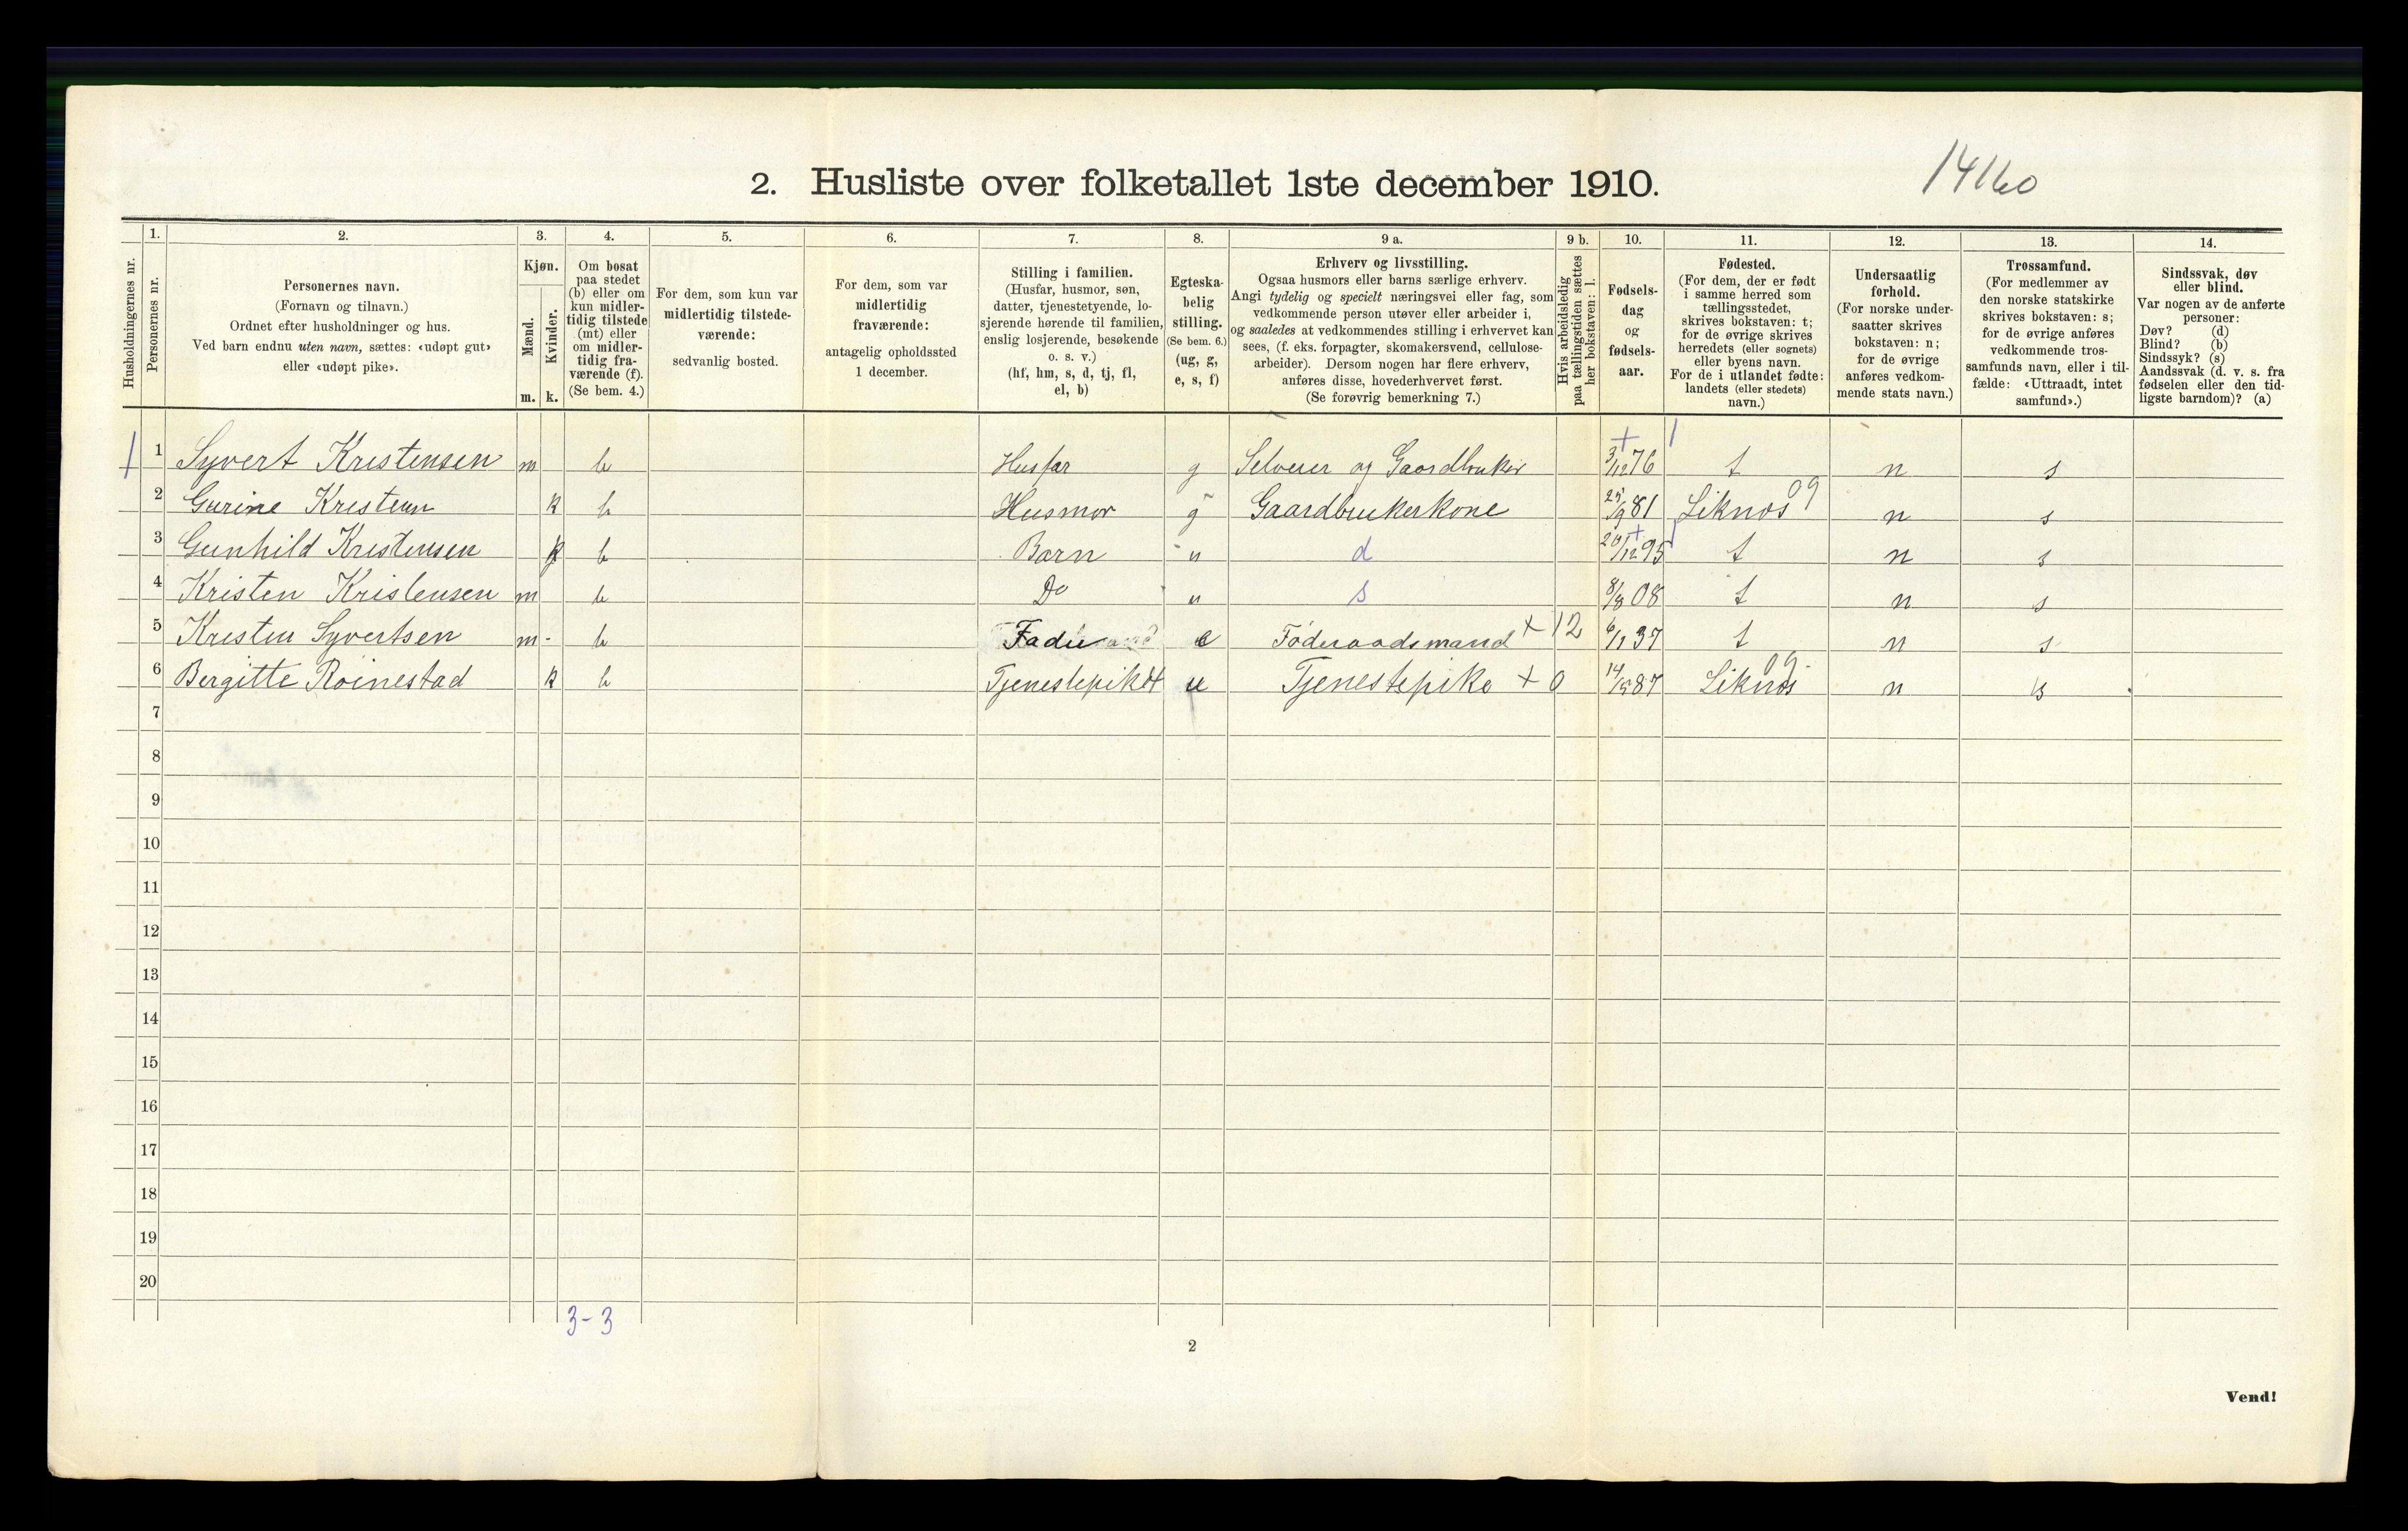 14160
2. Husliste over folketallet 1ste december 1910.
Husholdningernes nr.
1. Personernes nr.
2. Personernes navn.
(Fornavn og tilnavn.)
Ordnet efter husholdninger og hus.
Ved barn endnu uten navn, sættes: «udøpt gut»
eller «udøpt pike».
3. Kjøn.
Mænd. Kvinder.
m. k.
4. Om bosat
paa stedet
(b) eller om
kun midler-
tidig tilstede
(mt) eller
om midler-
tidig fra-
værende (f).
(Se bem. 4.)
5. For dem, som kun var
midlertidig tilstede-
værende:
sedvanlig bosted.
6. For dem, som var
midlertidig
fraværende:
antagelig opholdssted
1 december.
7. Stilling i familien.
(Husfar, husmor, søn,
datter, tjenestetyende, lo-
sjerende hørende til familien,
enslig losjerende, besøkende
o. s. v.)
(hf, hm, s, d, tj, fl,
el, b)
8. Egteska-
belig
stilling.
(Se bem. 6.)
(ug, g,
e, s, f)
9 a. Erhverv og livsstilling.
Ogsaa husmors eller barns særlige erhverv.
Angi tydelig og specielt næringsvei eller fag, som
vedkommende person utøver eller arbeider i,
og saaledes at vedkommendes stilling i erhvervet kan
sees, (f. eks. forpagter, skomakersvend, cellulose-
arbeider). Dersom nogen har flere erhverv,
anføres disse, hovederhvervet først.
(Se forøvrig bemerkning 7.)
9 b. Hvis arbeidsledig
paa tællingstiden sættes
her bokstaven: l.
10. Fødsels-
dag
og
fødsels-
aar.
11. Fødested.
(For dem, der er født
i samme herred som
tællingsstedet,
skrives bokstaven: t;
for de øvrige skrives
herredets (eller sognets)
eller byens navn.
For de i utlandet fødte:
landets (eller stedets)
navn.)
12. Undersaatlig
forhold.
(For norske under-
saatter skrives
bokstaven: n;
for de øvrige
anføres vedkom-
mende stats navn.)
13. Trossamfund.
(For medlemmer av
den norske statskirke
skrives bokstaven: s;
for de øvrige anføres
vedkommende tros-
samfunds navn, eller i til-
fælde: «Uttraadt, intet
samfund».)
14. Sindssvak, døv
eller blind.
Var nogen av de anførte
personer:
Døv? (d)
Blind? (b)
Sindssyk? (s)
Aandssvak (d. v. s. fra
fødselen eller den tid-
ligste barndom)? (a)
1 Syvert Kristensen m b Husfar g Selveier og Gaardbruker 3/12 76 t n s
2 Gurine Kristensen k b Husmor g Gaardbrukerkone 25/9 81 Liknes 09 n s
3 Gunhild Kristensen k b Barn u d 20/12 95 t n s
4 Kristen Kristensen m b Do u s 8/8 08 t n s
5 Kristen Syvertsen m b Fader e Föderaadsmand + 12 6/11 37 t n s
6 Bergitte Roinestad k b Tjenestepike u Tjenestepike + 0 14/5 87 Liknes 09 n s
7
8
9
10
11
12
13
14
15
16
17
18
19
20
3-3
2
Vend!